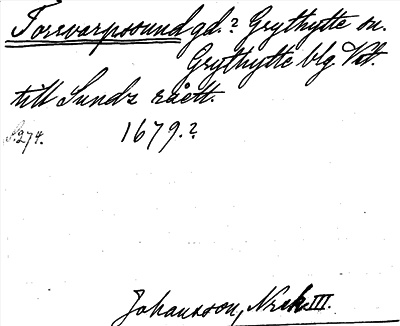 Torsvarpssund gd.? Grythytte sn.
Grythytte blg Vstm.
till Sundz råett.
S. 274. 1679.?
Johansson, Nrek. III.